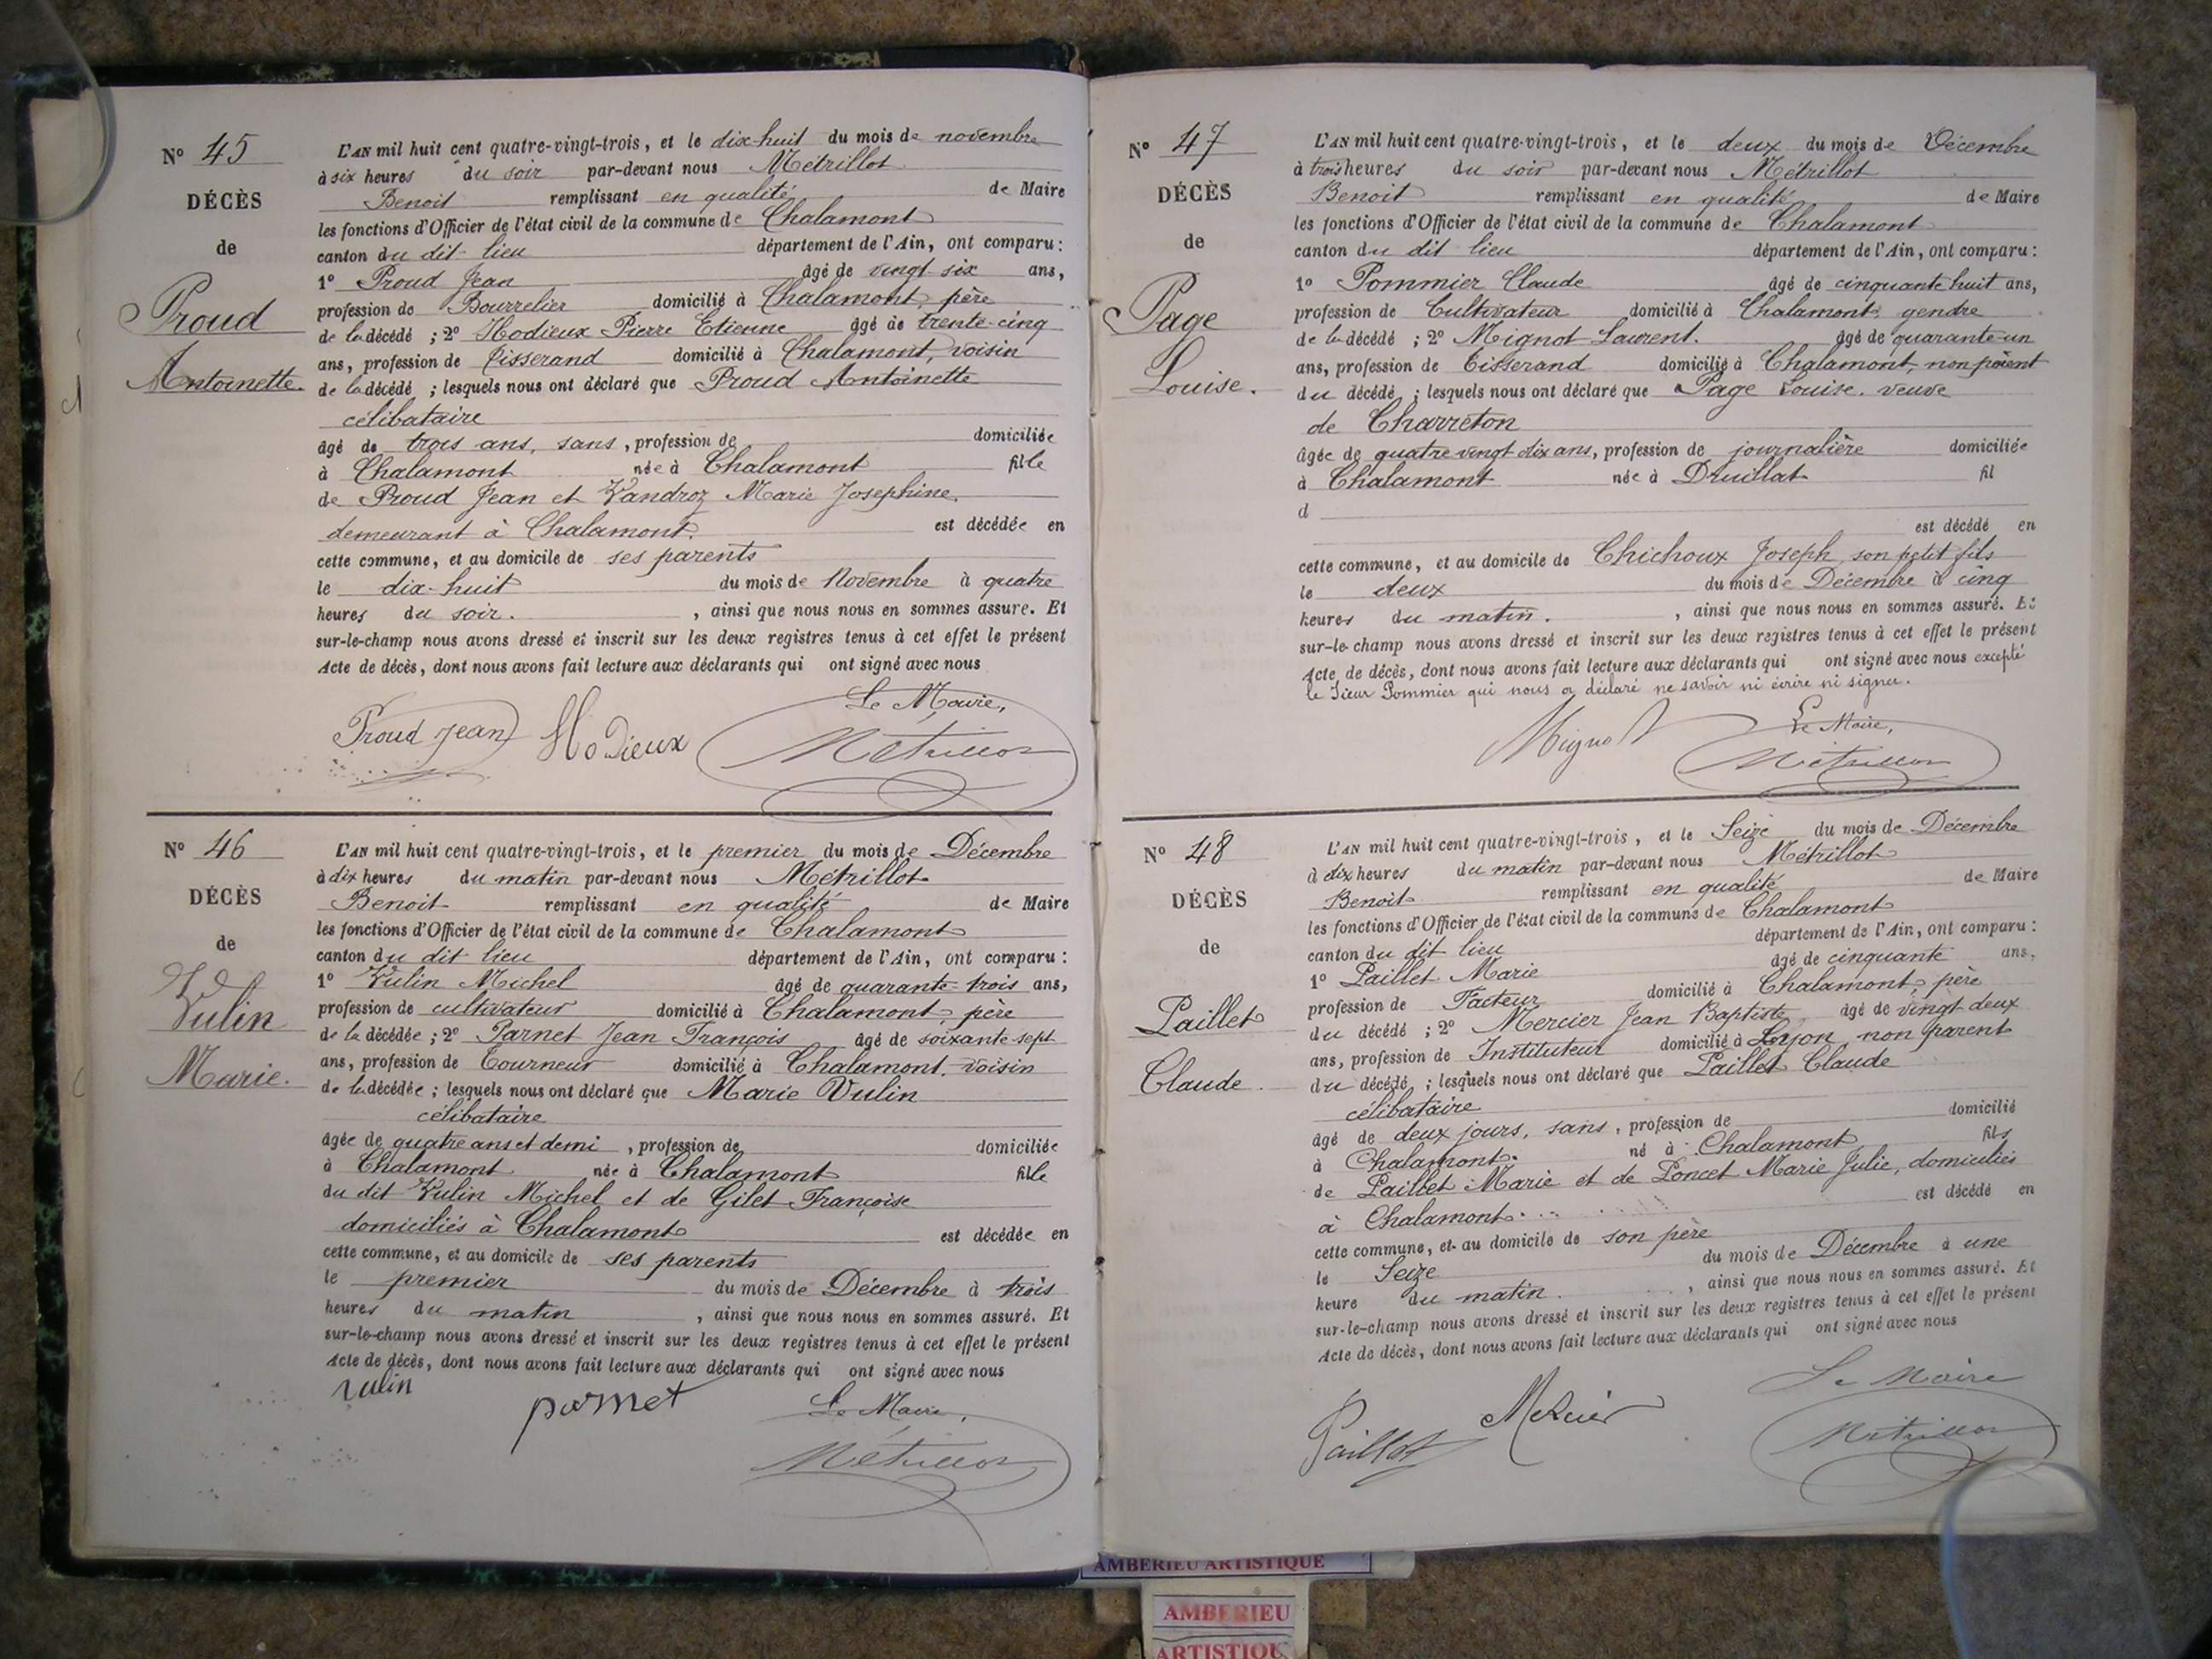 N° 45
DÉCÈS
de
Proud
Antoinette.
L'AN mil huit cent quatre-vingt-trois, et le dix-huit du mois de novembre
à six heures du soir par-devant nous Métrillot
Benoit remplissant en qualité de Maire
les fonctions d'Officier de l'état civil de la commune de Chalamont
canton du dit lieu département de l'Ain, ont comparu :
1° Proud Jean âgé de vingt-six ans,
profession de Bourrelier domicilié à Chalamont, père
de la décédé ; 2° Hodieux Pierre Etienne âgé de trente-cinq
ans, profession de Tisserand domicilié à Chalamont, voisin
de la décédé ; lesquels nous ont déclaré que Proud Antoinette
célibataire
âgé de trois ans, sans, profession de domiciliée
à Chalamont née à Chalamont fille
de Proud Jean et Vandroz Marie Josephine.
demeurant à Chalamont. est décédée en
cette commune, et au domicile de ses parents
le dix-huit du mois de Novembre à quatre
heures du soir. , ainsi que nous nous en sommes assuré. Et
sur-le-champ nous avons dressé et inscrit sur les deux registres tenus à cet effet le présent
Acte de décès, dont nous avons fait lecture aux déclarants qui ont signé avec nous
Le Maire,
Proud Jean Hodieux Métrillot
N° 46
DÉCÈS
de
Vulin
Marie.
L'AN mil huit cent quatre-vingt-trois, et le premier du mois de Décembre
à dix heures du matin par-devant nous Métrillot
Benoit remplissant en qualité de Maire
les fonctions d'Officier de l'état civil de la commune de Chalamont
canton du dit lieu département de l'Ain, ont comparu :
1° Vulin Michel âgé de quarante-trois ans,
profession de cultivateur domicilié à Chalamont, père
de la décédée ; 2° Parnet Jean François âgé de soixante-sept
ans, profession de Tourneur domicilié à Chalamont, voisin
de la décédée ; lesquels nous ont déclaré que Marie Vulin
célibataire
âgée de quatre ans et demi , profession de domiciliée
à Chalamont née à Chalamont fille
du dit Vulin Michel et de Gilet Françoise
domiciliés à Chalamont est décédée en
cette commune, et au domicile de ses parents
le premier du mois de Décembre à trois
heures du matin , ainsi que nous nous en sommes assuré. Et
sur-le-champ nous avons dressé et inscrit sur les deux registres tenus à cet effet le présent
Acte de décès, dont nous avons fait lecture aux déclarants qui ont signé avec nous
vulin parnet Le Maire,
Métrillot
N° 47
DÉCÈS
de
Page
Louise.
L'AN mil huit cent quatre-vingt-trois, et le deux du mois de Décembre
à trois heures du soir par-devant nous Métrillot
Benoit remplissant en qualité de Maire
les fonctions d'Officier de l'état civil de la commune de Chalamont
canton du dit lieu département de l'Ain, ont comparu :
1° Pommier Claude âgé de cinquante huit ans,
profession de Cultivateur domicilié à Chalamont, gendre
de la décédé ; 2° Mignot Laurent. âgé de quarante-un
ans, profession de Tisserand domicilié à Chalamont, non parent
du décédé ; lesquels nous ont déclaré que Page Louise. veuve
de Charreton
âgée de quatre vingt dix ans, profession de journalière domiciliée
à Chalamont née à Druillat fil
d
est décédé en
cette commune, et au domicile de Chichoux Joseph, son petit fils
le deux du mois de Décembre à cinq
heures du matin. , ainsi que nous nous en sommes assuré. Et
sur-le-champ nous avons dressé et inscrit sur les deux registres tenus à cet effet le présent
Acte de décès, dont nous avons fait lecture aux déclarants qui ont signé avec nous excepté
le Sieur Pommier qui nous a déclaré ne savoir ni écrire ni signer.
Mignot Le Maire,
Métrillot
N° 48
DÉCÈS
de
Paillet
Claude.
L'AN mil huit cent quatre-vingt-trois, et le Seize du mois de Décembre
à dix heures du matin par-devant nous Métrillot
Benoit remplissant en qualité de Maire
les fonctions d'Officier de l'état civil de la commune de Chalamont
canton du dit lieu département de l'Ain, ont comparu :
1° Paillet Marie âgé de cinquante ans,
profession de Facteur domicilié à Chalamont, père
du décédé ; 2° Mercier Jean Baptiste âgé de vingt deux
ans, profession de Instituteur domicilié à Lyon non parent
du décédé ; lesquels nous ont déclaré que Paillet Claude
célibataire
âgé de deux jours, sans, profession de domicilié
à Chalamont. né à Chalamont fils
de Paillet Marie et de Poncet Marie Julie, domiciliés
à Chalamont. est décédé en
cette commune, et au domicile de son père
le Seize du mois de Décembre à une
heure du matin. , ainsi que nous nous en sommes assuré. Et
sur-le-champ nous avons dressé et inscrit sur les deux registres tenus à cet effet le présent
Acte de décès, dont nous avons fait lecture aux déclarants qui ont signé avec nous
Le Maire
Paillet Mercier Métrillot
AMBERIEU ARTISTIQUE
AMBERIEU
ARTISTIQU